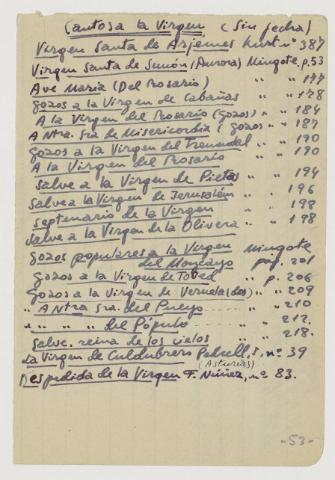 Cantos a la Virgen (Sin fecha)
Virgen Santa de Arjemes Kurt nº 387
Virgen Santa de Sunión (Aurora) Mingote, p. 53
Ave Maria (Del Rosario) " " 177
Gozos a la Virgen de Cabañas " " 178
A la Virgen del Rosario (Gozos) " " 184
A Ntra. Sra de Misericordia (Gozos " " 187
Gozos a la Virgen del Tremedal " " 190
A la Virgen del Rosario " " 190
Salve a la Virgen de Pietas " " 194
Salve a la Virgen de Jerusalém " 196
Septenario de la Virgen " " 198
Salve a la Virgen de la Olivera " " 198
Gozos populares a la Virgen Mingote
del Moncayo pág. 201
Gozos a la Virgen de Tobed " p. 206
Gozos a la Virgen de Veruela (dos) " " 209
" A Ntra Sra. del Pueyo " " 210
" " " " del Pópulo " " 212
Salve, reina de los cielos " " 218.
La Virgen de Culdubrero Pedrell, I, nº 39
(Asturias)
Despedida de la Virgen F. Núñez, nº 83.
-53-